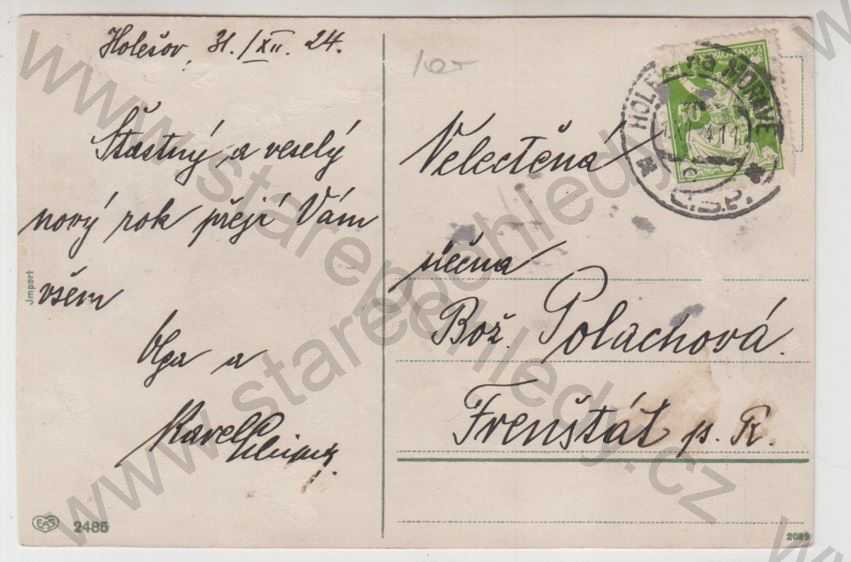 Holešov, 31./XII. 24.
Šťastný a veselý
nový rok přejí Vám
všem
Olga a
Karel
Import
EAS 2485
10,-
Velectěná
slečna
Bož. Polachová.
Frenštát p. R.
50
HOLEŠOV NA MORAVĚ
Č.S.P.
2089
www.starepohledy.cz